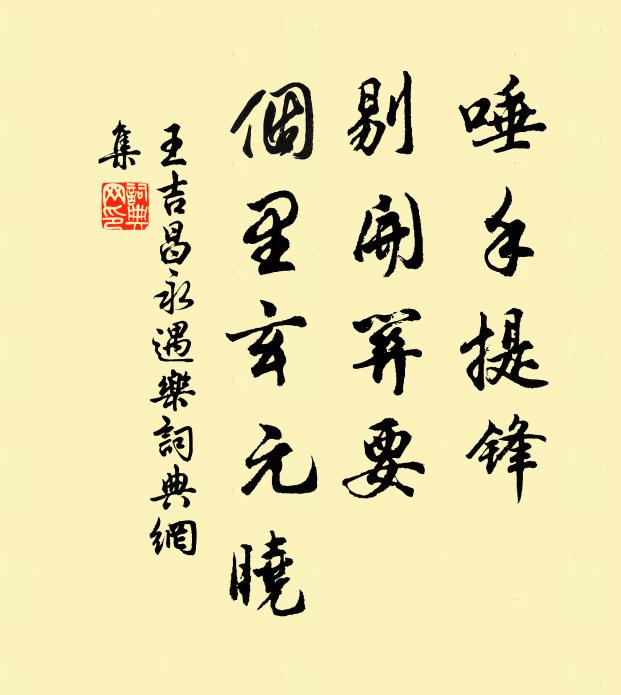 唾手提锋
剔開笄要
個里玄元曉
王吉昌永遇樂詞典網
集
詞典
网印